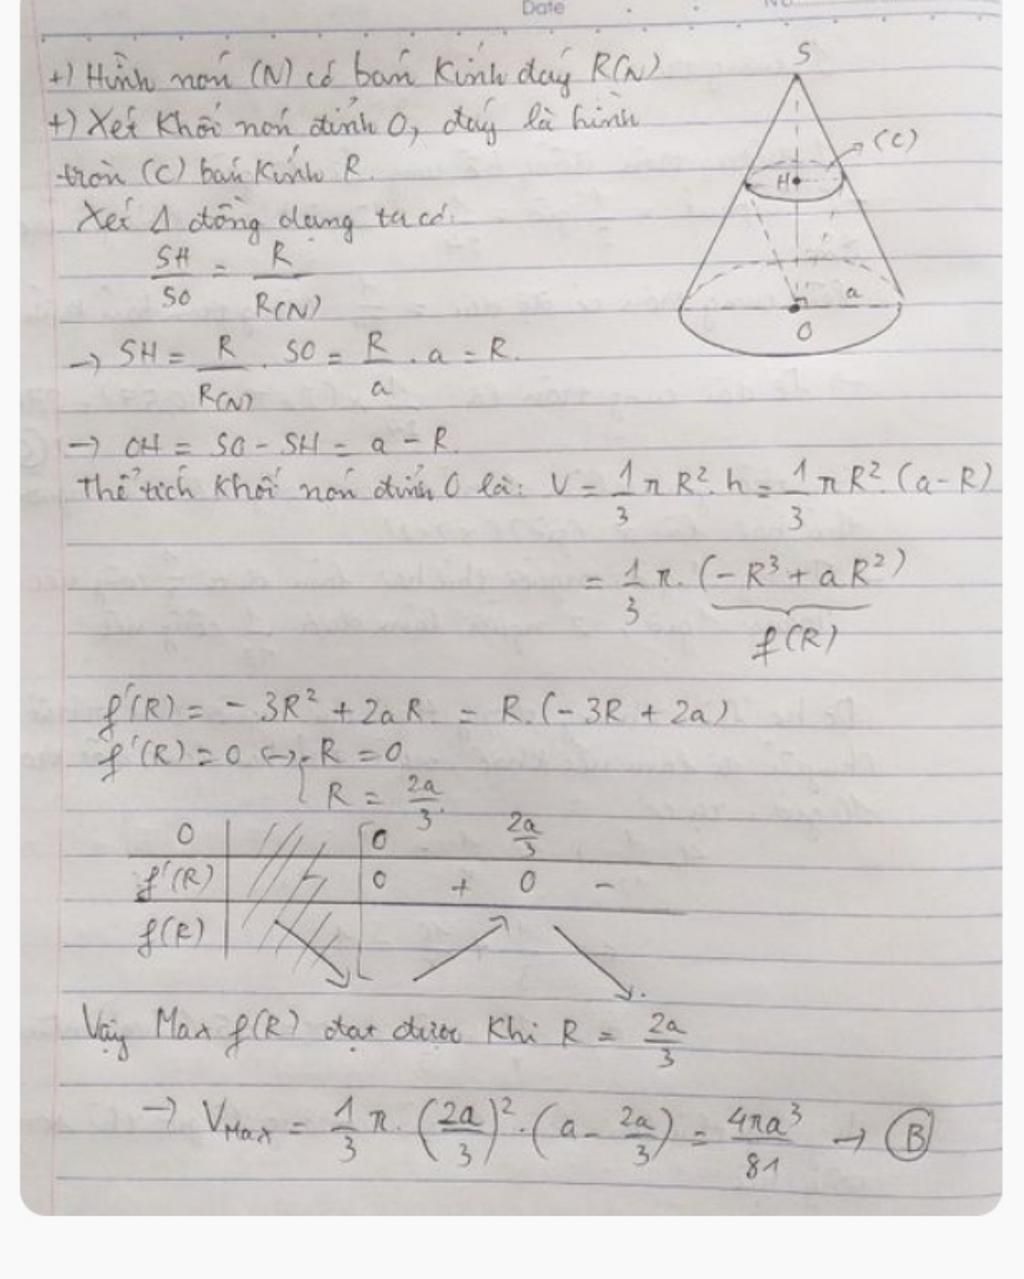 Date
+) Hình nón (N) có bán kính đáy R(N)
+) Xét khối nón đỉnh O, đáy là hình
tròn (C) bán kính R.
Xét Δ đồng dạng ta có:
SH/SO = R/R(N)
→ SH = R/R(N) . SO = R/a . a = R.
→ OH = SO - SH = a - R.
Thể tích khối nón đỉnh O là: V = 1/3 π R². h = 1/3 π R². (a - R)
= 1/3 π. (-R³ + aR²)
f(R)
f'(R) = - 3R² + 2aR = R.(-3R + 2a)
f'(R) = 0 ↔ R = 0
R = 2a/3.
0 0 2a/3
f'(R) - 0 + 0 -
f(R)
Vậy Max f(R) đạt được khi R = 2a/3
→ VMax = 1/3 π. (2a/3)². (a - 2a/3) = 4πa³/81 → B
S
(C)
H
a
O